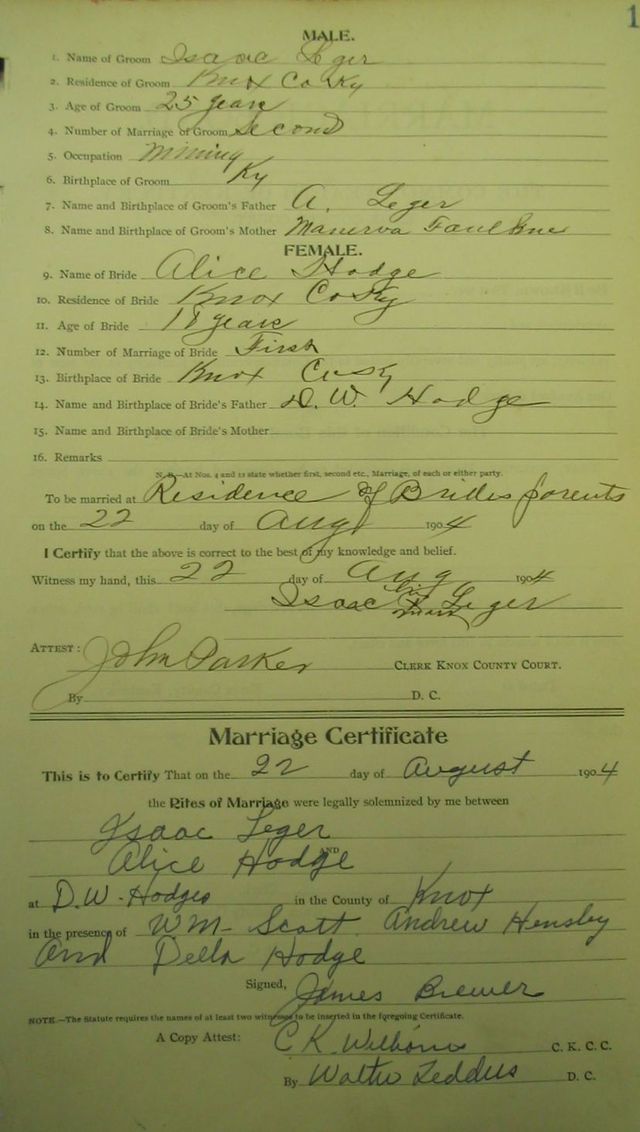 1
MALE.
1. Name of Groom Isaac Leger
2. Residence of Groom Knox Co Ky
3. Age of Groom 25 years
4. Number of Marriage of Groom Second
5. Occupation Mining
6. Birthplace of Groom Ky
7. Name and Birthplace of Groom's Father A. Leger
8. Name and Birthplace of Groom's Mother Manerva Faulkner
FEMALE.
9. Name of Bride Alice Hodge
10. Residence of Bride Knox Co Ky
11. Age of Bride 18 years
12. Number of Marriage of Bride First
13. Birthplace of Bride Knox Co Ky
14. Name and Birthplace of Bride's Father D. W. Hodge
15. Name and Birthplace of Bride's Mother
16. Remarks
N. B.—At Nos. 4 and 12 state whether first, second etc., Marriage, of each or either party.
To be married at Residence of Brides parents
on the 22 day of Aug 1904
I Certify that the above is correct to the best of my knowledge and belief.
Witness my hand, this 22 day of Aug 1904
Isaac his X mark Leger
ATTEST: John Parker CLERK KNOX COUNTY COURT.
By D. C.
Marriage Certificate
This is to Certify That on the 22 day of August 1904
the Rites of Marriage were legally solemnized by me between
Isaac Leger
AND
Alice Hodge
at D. W. Hodges in the County of Knox
in the presence of WM Scott Andrew Hensley
And Della Hodge
Signed, James Brewer
NOTE.—The Statute requires the names of at least two witnesses to be inserted in the foregoing Certificate.
A Copy Attest: C K. C. K. C. C.
By Walter D. C.